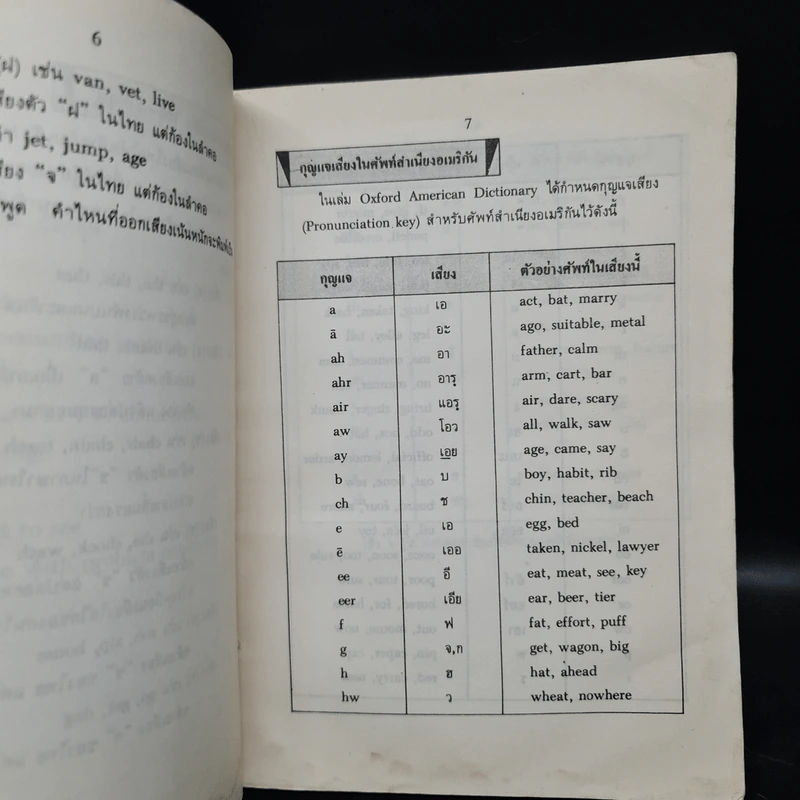 6
เช่น van, vet, live
"ฝ" ในไทย แต่ก้องในลำคอ
jet, jump, age
"จ" ในไทย แต่ก้องในลำคอ
พูด คำไหนที่ออกเสียงเน้นหนักจะพิมพ์
7
กุญแจเสียงในศัพท์สำเนียงอเมริกัน
ในเล่ม Oxford American Dictionary ได้กำหนดกุญแจเสียง
(Pronunciation key) สำหรับศัพท์สำเนียงอเมริกันไว้ดังนี้
กุญแจ เสียง ตัวอย่างศัพท์ในเสียงนี้
a เอ act, bat, marry
ā อะ ago, suitable, metal
ah อา father, calm
ahr อารฺ arm, cart, bar
air แอรฺ air, dare, scary
aw โอว all, walk, saw
ay เอย age, came, say
b บ boy, habit, rib
ch ช chin, teacher, beach
e เอ egg, bed
ē เออ taken, nickel, lawyer
ee อี eat, meat, see, key
eer เอีย ear, beer, tier
f ฟ fat, effort, puff
g จ,ก get, wagon, big
h ฮ hat, ahead
hw ว wheat, nowhere